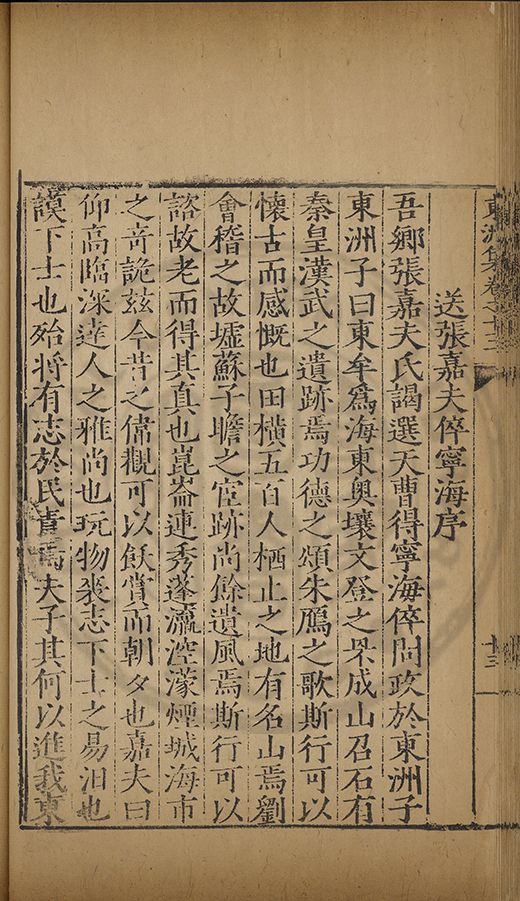 東洲集卷之十三
十三
送張嘉夫倅寧海序
吾鄉張嘉夫氏謁選天曹得寧海倅問政於東洲子
東洲子曰東牟爲海東奧壤文登之杲成山召石有
秦皇漢武之遺跡焉功德之頌朱鴈之歌斯行可以
懷古而感慨也田橫五百人栖止之地有名山焉劉
會稽之故墟蘇子瞻之宦跡尚餘遺風焉斯行可以
諮故老而得其真也崑崙連秀蓬瀛涳濛煙城海市
之竒詭茲今昔之偉觀可以飫賞而朝夕也嘉夫曰
仰高臨深達人之雅尚也玩物喪志下士之易汨也
謨下士也殆將有志於民責焉夫子其何以進我東